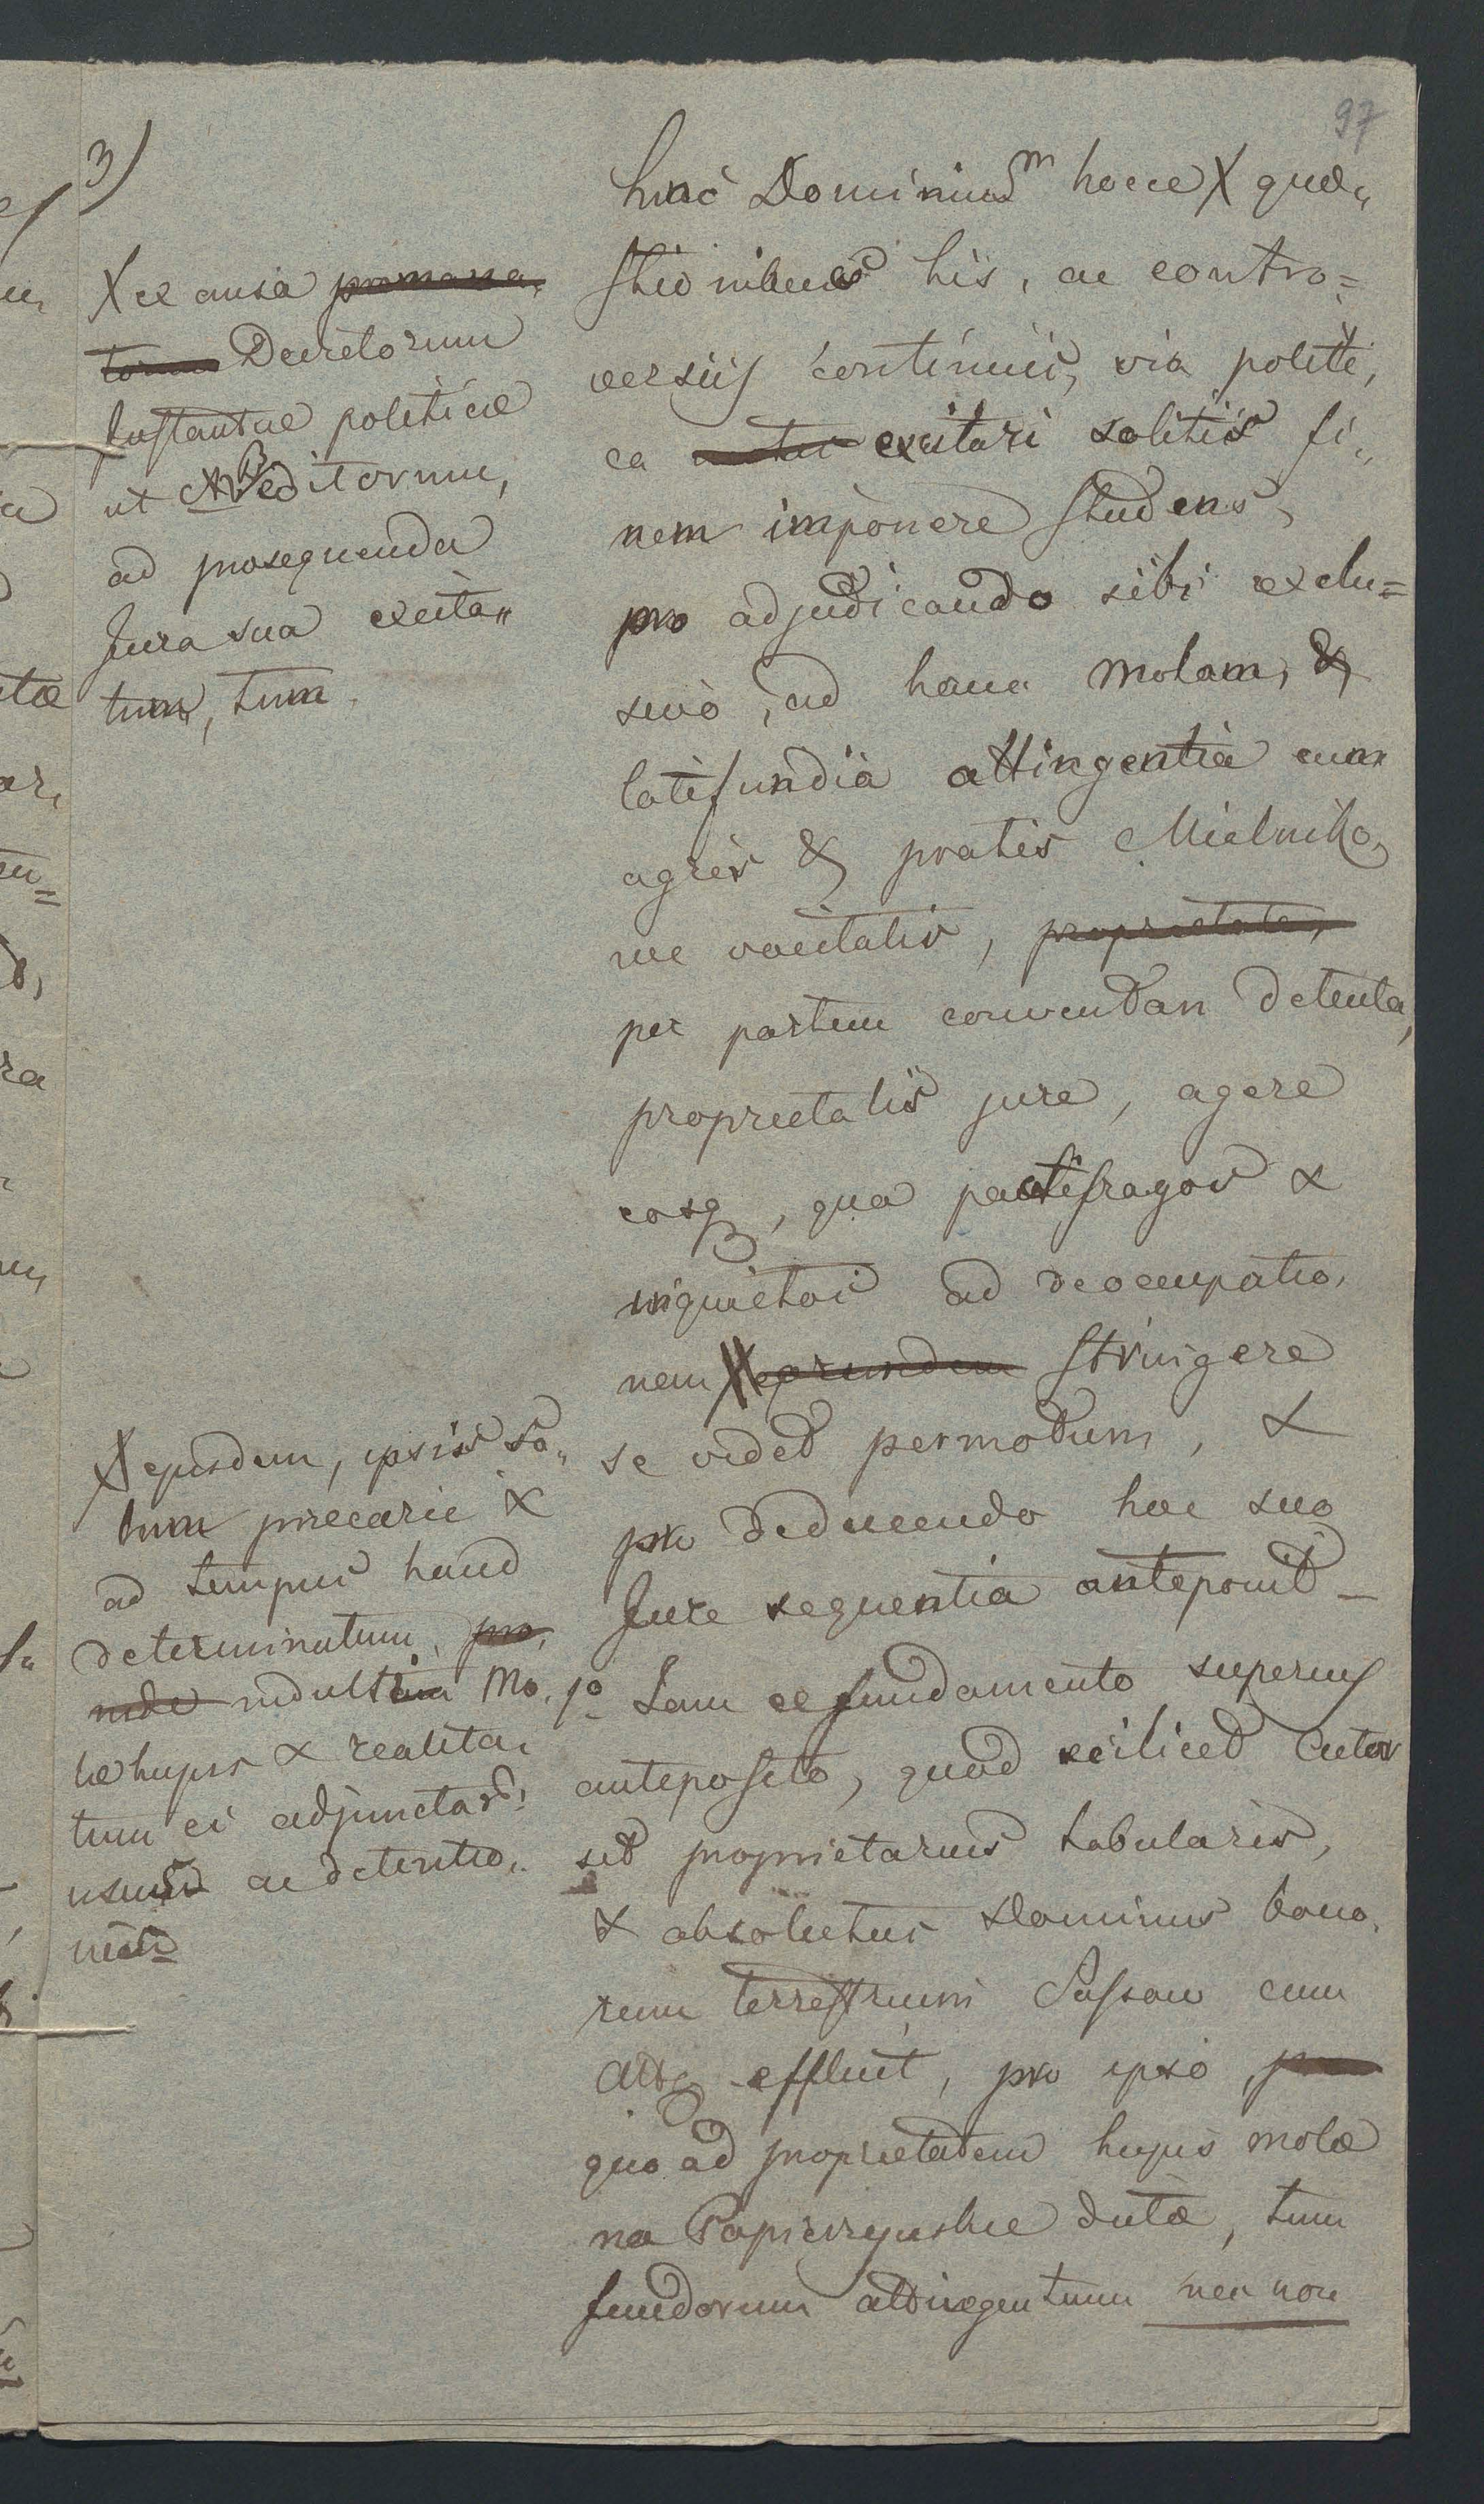 97
3)
X ex causa promana,
torum Decretorum
Instantiæ politicæ
ut NB editorum,
ad prosequenda
Jura sua excita„
tum, tum
hinc Dominium hocce X quæ„
stionibus his, ac contro=
versiis continuis, via politi,
ca excitari solitis fi„
nem imponere studens,
pro adjudicando sibi exclu=
sivo, ad hanc molam, &
latifundia attingentia cum
agris & pratis Mielniko,
we vocitatis, proprietate,
per partem conventam detenta,
proprietatis jure, agere
eosq, qua pactifragos &
inquietos ad deoccupatio,
nem X eorundem stringere
se videt permotum, &
pro deducendo hoc suo
Jure sequentia anteponit –
X ejusdem, ipsis so„
lum precarie &
ad tempus haud
determinatum, pro,
inde indultam Mo,
læ hujus & realita,
tum ei adjunctar:
usum ac detentio,
nem
1º Jam ex fundamento superius
anteposito, quod scilicet Actor
sit proprietarius tabularis,
& absolutus Dominus bono,
rum terrestrium Sassow cum
Attq effluit, pro ipso,
quoad proprietatem hujus molæ
na Papierzyskie dictæ, tum
fundorum attingentium nec non